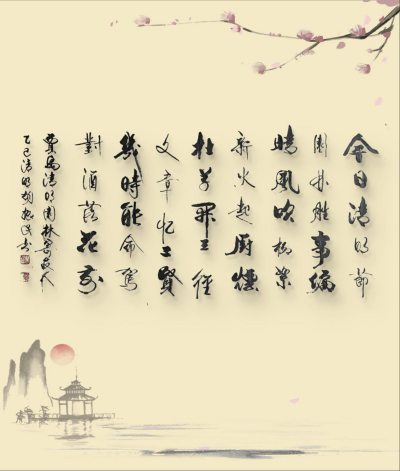 今日清明節
園林胜事偏
晴風吹柳絮
新火起厨煙
杜草開三徑
文章忆二賢
幾時能命駕
對酒落花前
賈島清明園林寄友人
乙巳清明
书